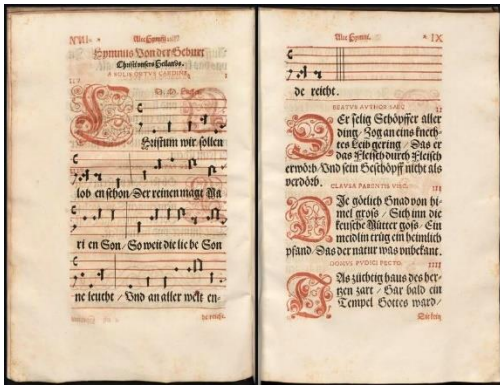 Alte Hymni.
Hymnus Von der Geburt
Christi unsers Heilandes.
A SOLIS ORTVS CARDINE.
Christum wir sollen
lob en schon / Der reinen magt Ma
ri en Son / So weit die lie be Son
ne leucht / Vnd an aller welt en-
de reicht.
Alte Hymni.
IX
de reicht.
BEATVS AVTHOR SAEC.
II
DEr selig Schöpffer aller
ding / Zog an eins knech-
tes Leib gering / Das er
das Fleisch durch Fleisch
erwörb / Vnd sein Geschöpff nicht als
verdörb.
CLAVSA PARENTIS VISC.
III
DJe götlich Gnad von hi-
mel gros / Sich inn die
keusche Mutter gos / Ein
meidlin trug ein heimlich
pfand / Das der natur was unbekant.
DOMVS PVDICI PECTO.
IIII
DAs züchtig haus des her-
tzen zart / Gar bald ein
Tempel Gottes ward /
Die kein